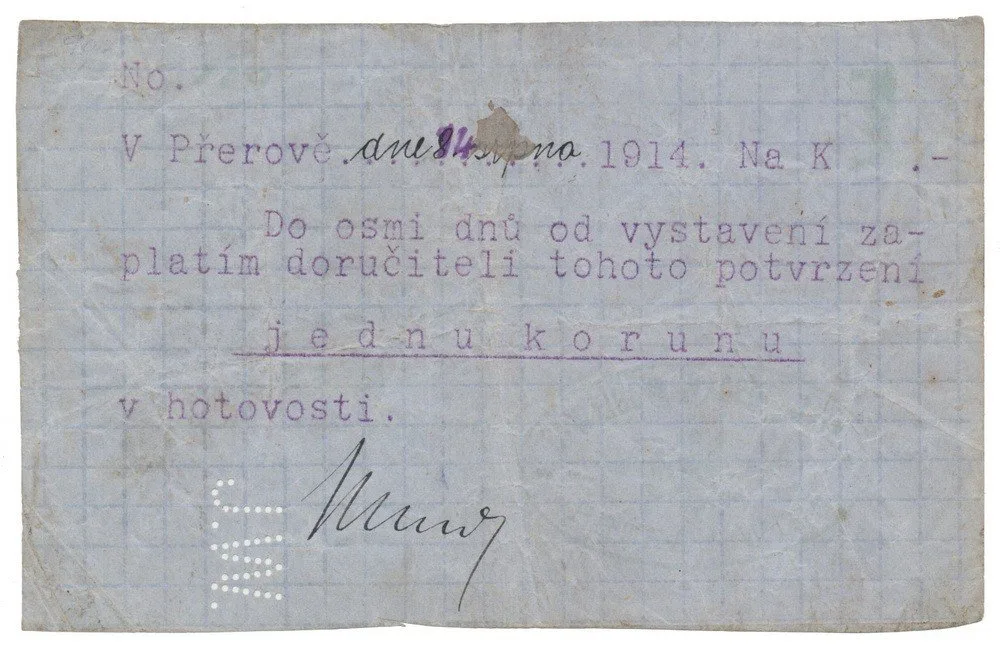 No.
V Přerově dne 14. srpna 1914. Na K .-
Do osmi dnů od vystavení za-
platím doručiteli tohoto potvrzení
jednu korunu
v hotovosti.